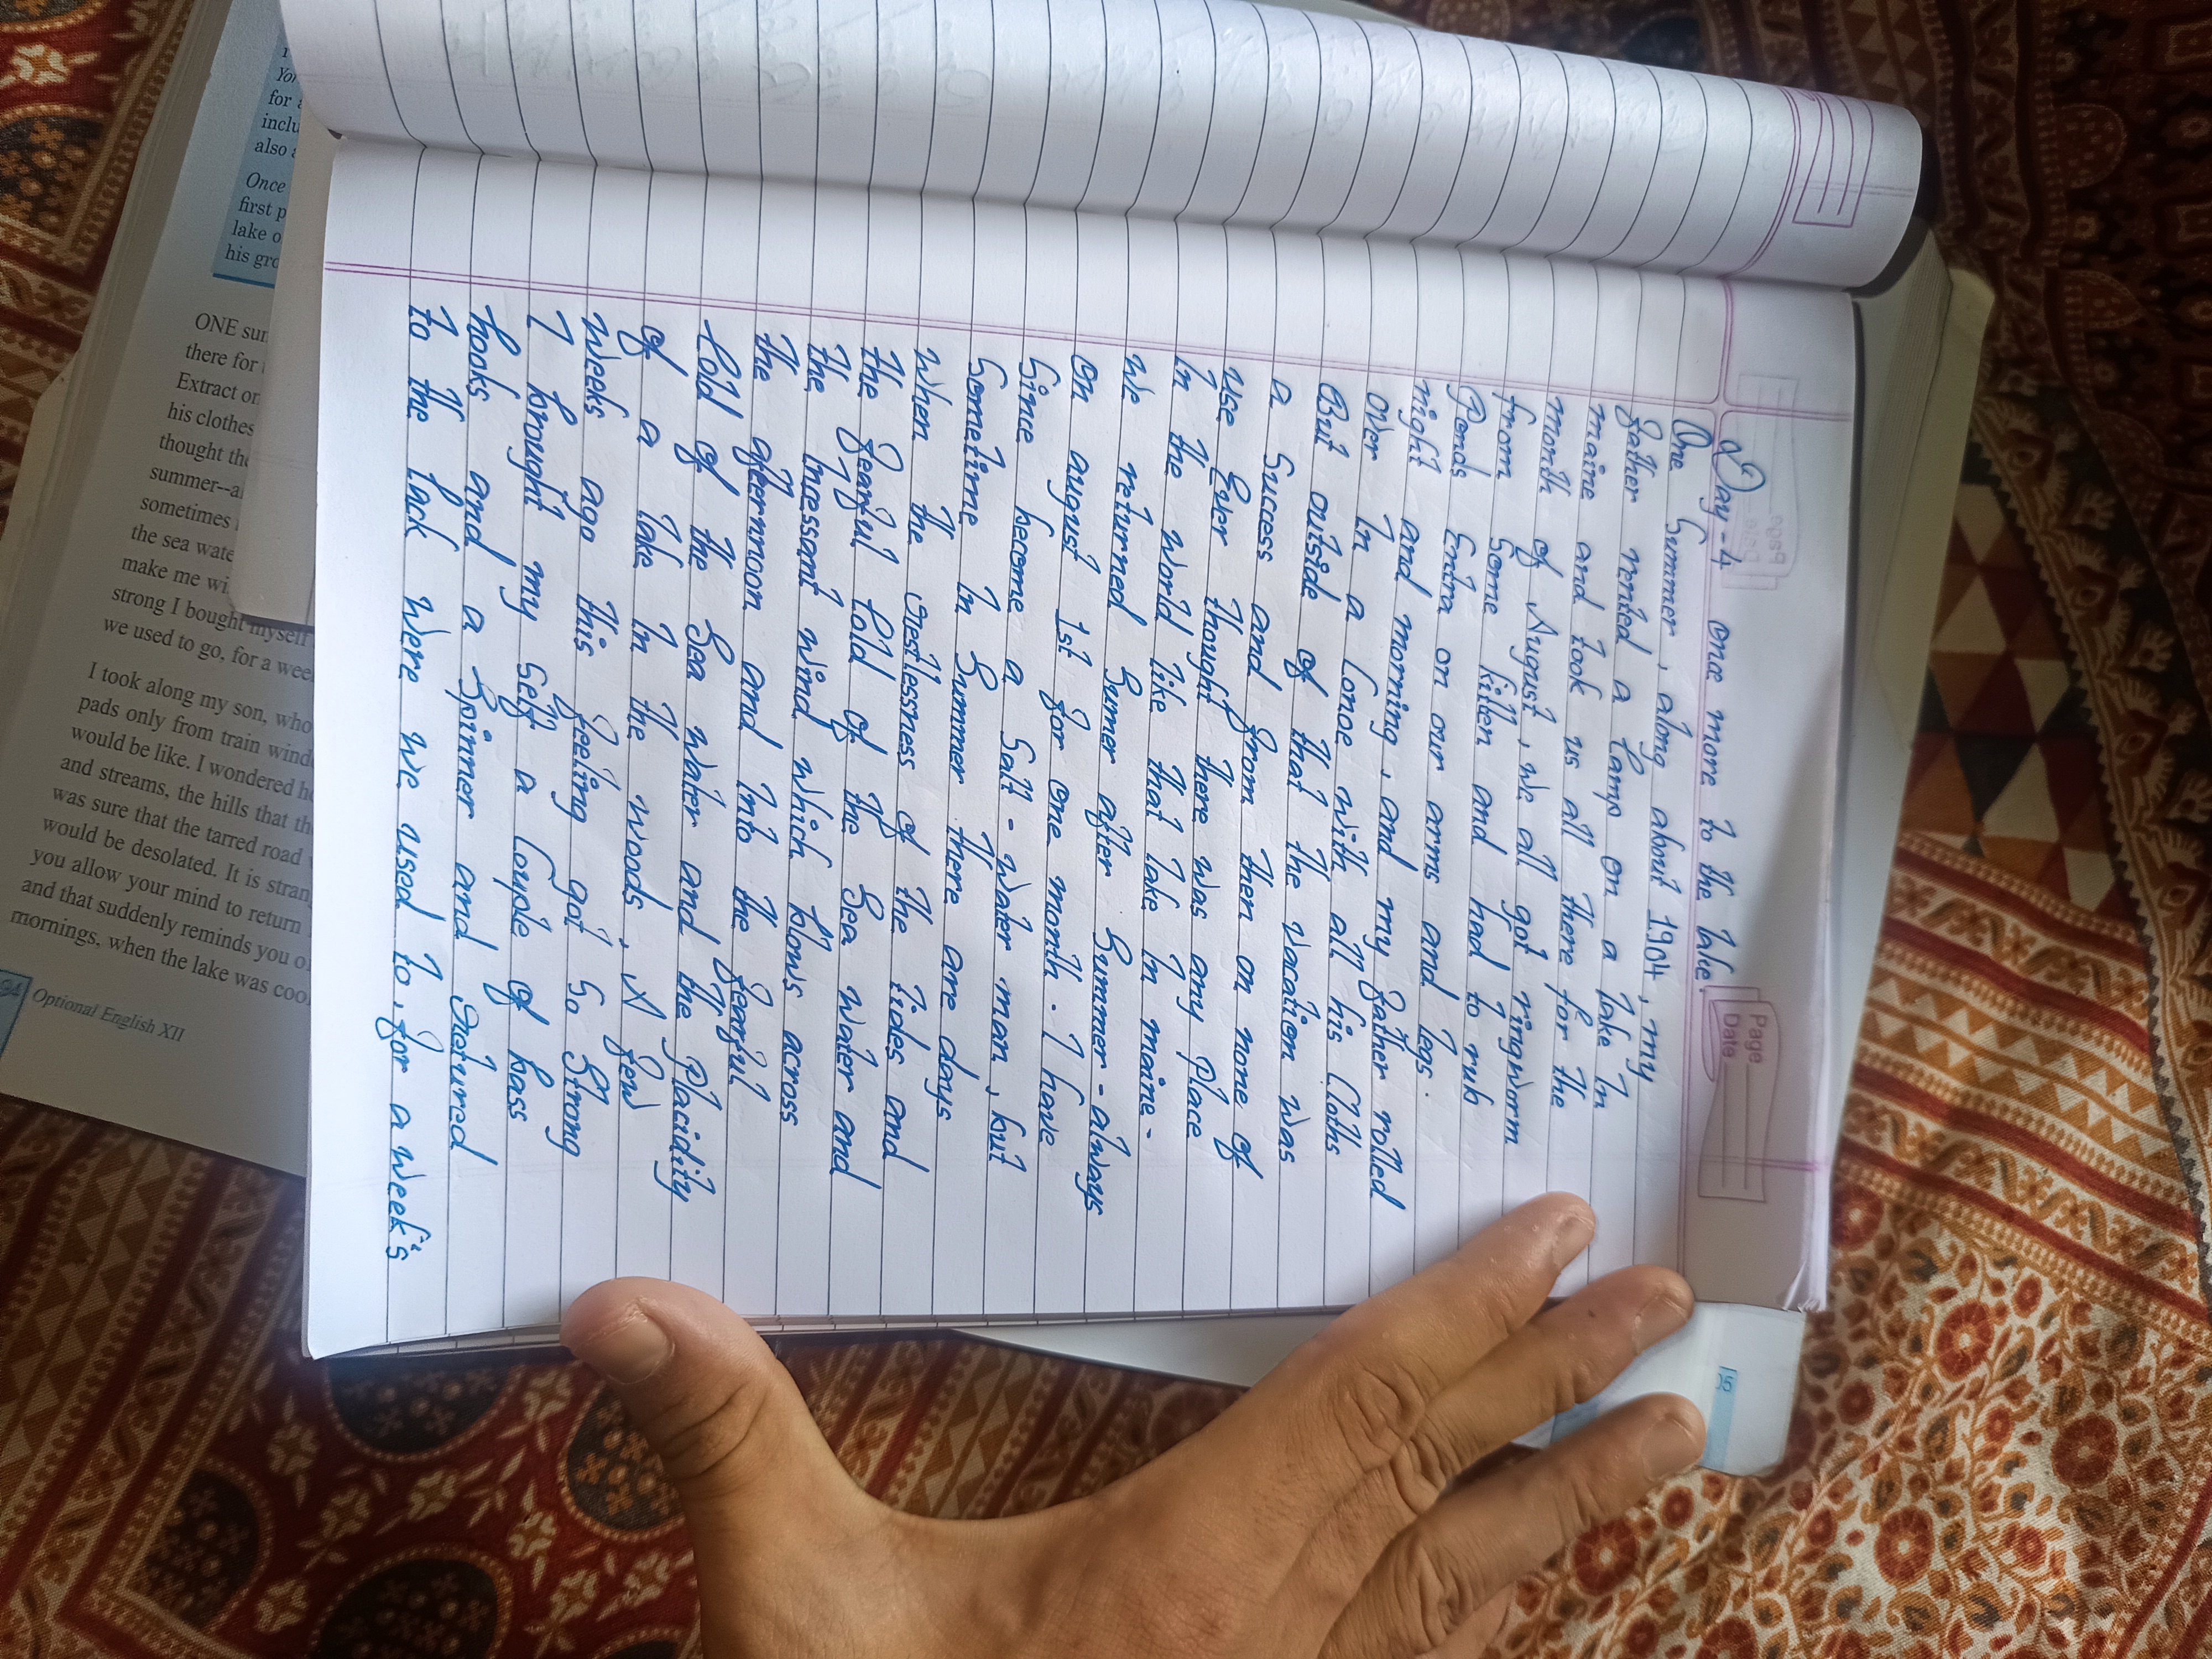 Page
Date
Day-4 once more to the lake.
One Summer, along about 1904, my
father rented a Camp on a lake In
maine and took us all there for the
month of August, we all got ringworm
from Some kitten and had to rub
Ponds Extra on our arms and legs.
night and morning, and my father rolled
over In a Conoe with all his Cloths
But outside of that the vacation was
a Success and from then on none of
use Ever thought there was any place
In the world like that lake In maine-
We returned Sumer after Summer-always
on august 1st for one month. I have
Since become a Salt-water man, but
Sometime In Summer there are days
when the restlessness of the tides and
the fearful Cold of the Sea water and
the Incessant wind which blows across
the afternmoon and Into the fearful
Cold of the Sea water and the placidity
of a lake In the woods, A few
weeks ago this feeling got So Strong
I brought my self a Couple of bass
hooks and a Spinner and returned
to the lack were we used to, for a week's
Yor
for a
inclu
also a
Once
first p
lake o
his gro
ONE sun
there for
Extract on
his clothes
thought the
summer--a
sometimes
the sea wate
make me wi
strong I bought myself
we used to go, for a wee
I took along my son, who
pads only from train wind
would be like. I wondered h
and streams, the hills that th
was sure that the tarred road
would be desolated. It is stran
you allow your mind to return
and that suddenly reminds you o
mornings, when the lake was coo
94 Optional English XII